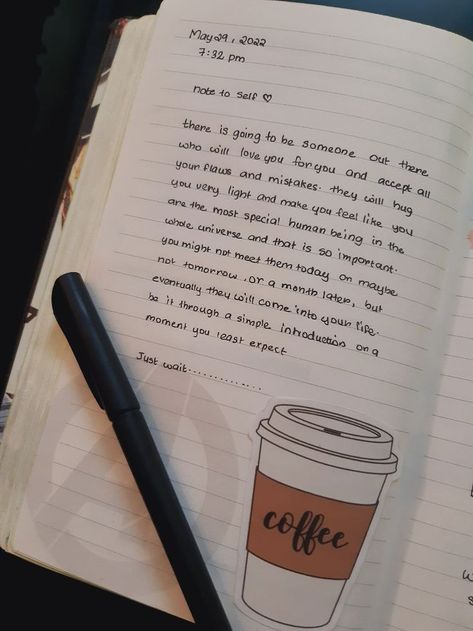 May 29, 2022
7:32 pm
note to self ♡
there is going to be someone out there
who will love you for you and accept all
your flaws and mistakes. they will hug
you very light and make you feel like you
are the most special human being in the
whole universe and that is so important.
you might not meet them today on maybe
not tomorrow, or a month later, but
eventually they will come into your life.
be it through a simple introduction on a
moment you least expect
Just wait..............
coffee